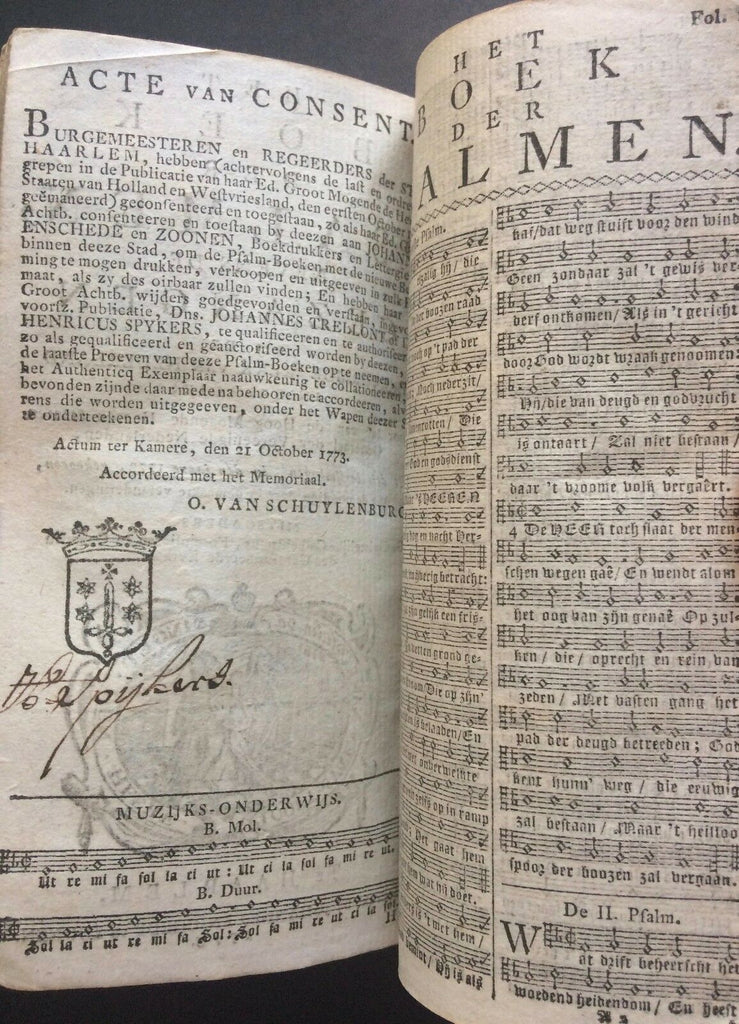 ACTE VAN CONSENT.
BURGEMEESTEREN en REGEERDERS der
HAARLEM, hebben (achtervolgens de last en ordre
grepen in de Publicatie van haar Ed. Groot Mogende de
Staaten van Holland en Westvriesland, den eersten October
geëmaneerd) geconsenteerd en toegestaan, zó als haar Ed.
Achtb. consenteeren en toestaan by deezen aan
ENSCHEDÉ en ZOONEN, Boekdrukkers en
binnen deeze Stad, om de Psalm-Boeken met de nieuwe
ming te mogen drukken, verkoopen en uitgeeven in zulk
maat, als zy des oirbaar zullen vinden; En hebben haar
Groot Achtb. wijders goedgevonden en verstaan,
voorsz. Publicatie, Dns. JOHANNES
HENRICUS SPYKERS, te qualificeeren en te
zo als gequalificeerd en geauctoriseerd worden by deezen,
de laatste Proeven van deeze Psalm-Boeken op te neemen,
het Authenticq Exemplaar naauwkeurig te collationeeren,
bevonden zijnde daar mede na behooren te accordeeren,
rens die worden uitgegeeven, onder het Wapen deezer
te onderteekenen.
Actum ter Kamere, den 21 October 1773.
Accordeerd met het Memoriaal.
O. VAN SCHUYLENBURG
Spijkers.
MUZIJKS-ONDERWIJS.
B. Mol.
Ut re mi fa sol la ci ut: Ut ci la sol fa mi re ut.
B. Duur.
Sol la ci ut re mi fa Sol: Sol fa mi re ut ci la
Fol.
HET
BOEK
DER
ALMEN.
Psalm.
die
boozen raad
op 't pad der
Noch nederzit/
Die
God en godsdienst
's HEEREN
en nacht
betracht:
gelijk een
grond ge-
Die op zijn'
belaaden/ En
onverwelkte
zelfs op in ramp
Het gaat hem
wat hij doet.
is 't met hem/
Hij is als
kaf/ dat weg stuift voor den wind
Geen zondaar zal 't gewis ver-
derf ontkomen/ Als in 't gericht
door God wordt wraak genoomen:
Hij/ die van deugd en godvrucht
is ontaart/ Zal niet bestaan/
daar 't vroome volk vergaêrt.
4 De HEER toch slaat der men-
schen wegen gaê/ En wendt alom
het oog van zijn genaê Op zul-
ken/ die/ oprecht en rein van
zeden/ Met vasten gang het
pad der deugd betreeden; God
kent hunn' weg/ die eeuwig
zal bestaan/ Maar 't heilloos
spoor der boozen zal vergaan.
De II. Psalm.
Wat drift beheerscht het
woedend heidendom/ En heeft
A 2